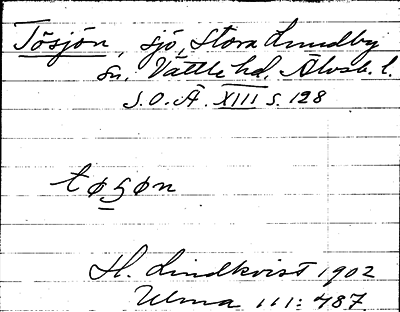 Tösjön, sjö, Stora Lundby
sn. Vättle hd. Älvsb. l.
S.O.Ä. XIII s. 128
tøʂøn
H. Lindkvist 1902
Ulma 111:487